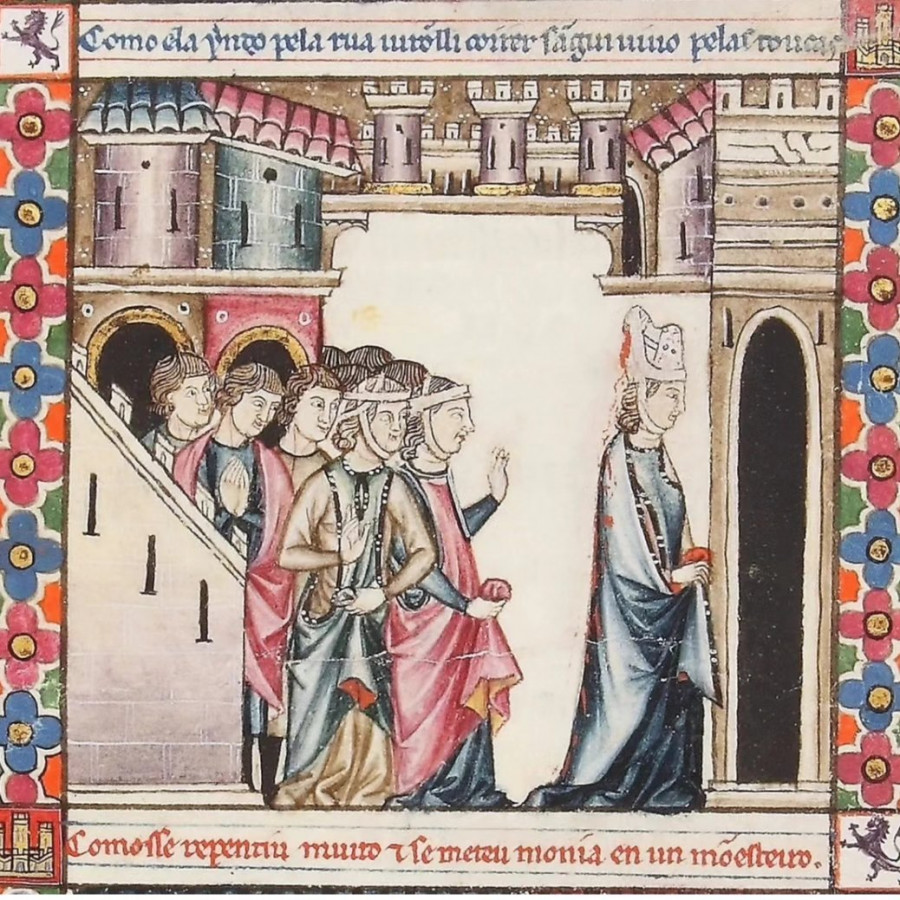 Como ela yndo pela rua uirõlli correr sãgui uiuo pelas toucas
Comosse repentiu muito ⁊ se meteu monia en un mõesteiro.